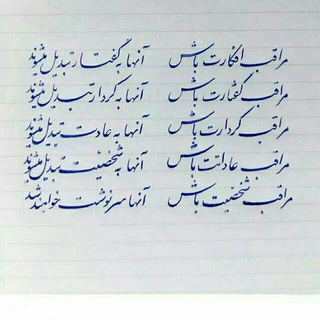 مراقب افکارت باش آنها به گفتار تبدیل میشوند
مراقب گفتارت باش آنها به کردار تبدیل میشوند
مراقب کردارت باش آنها به عادت تبدیل میشوند
مراقب عاداتت باش آنها به شخصیت تبدیل میشوند
مراقب شخصیت باش آنها سرنوشت خواهند شد